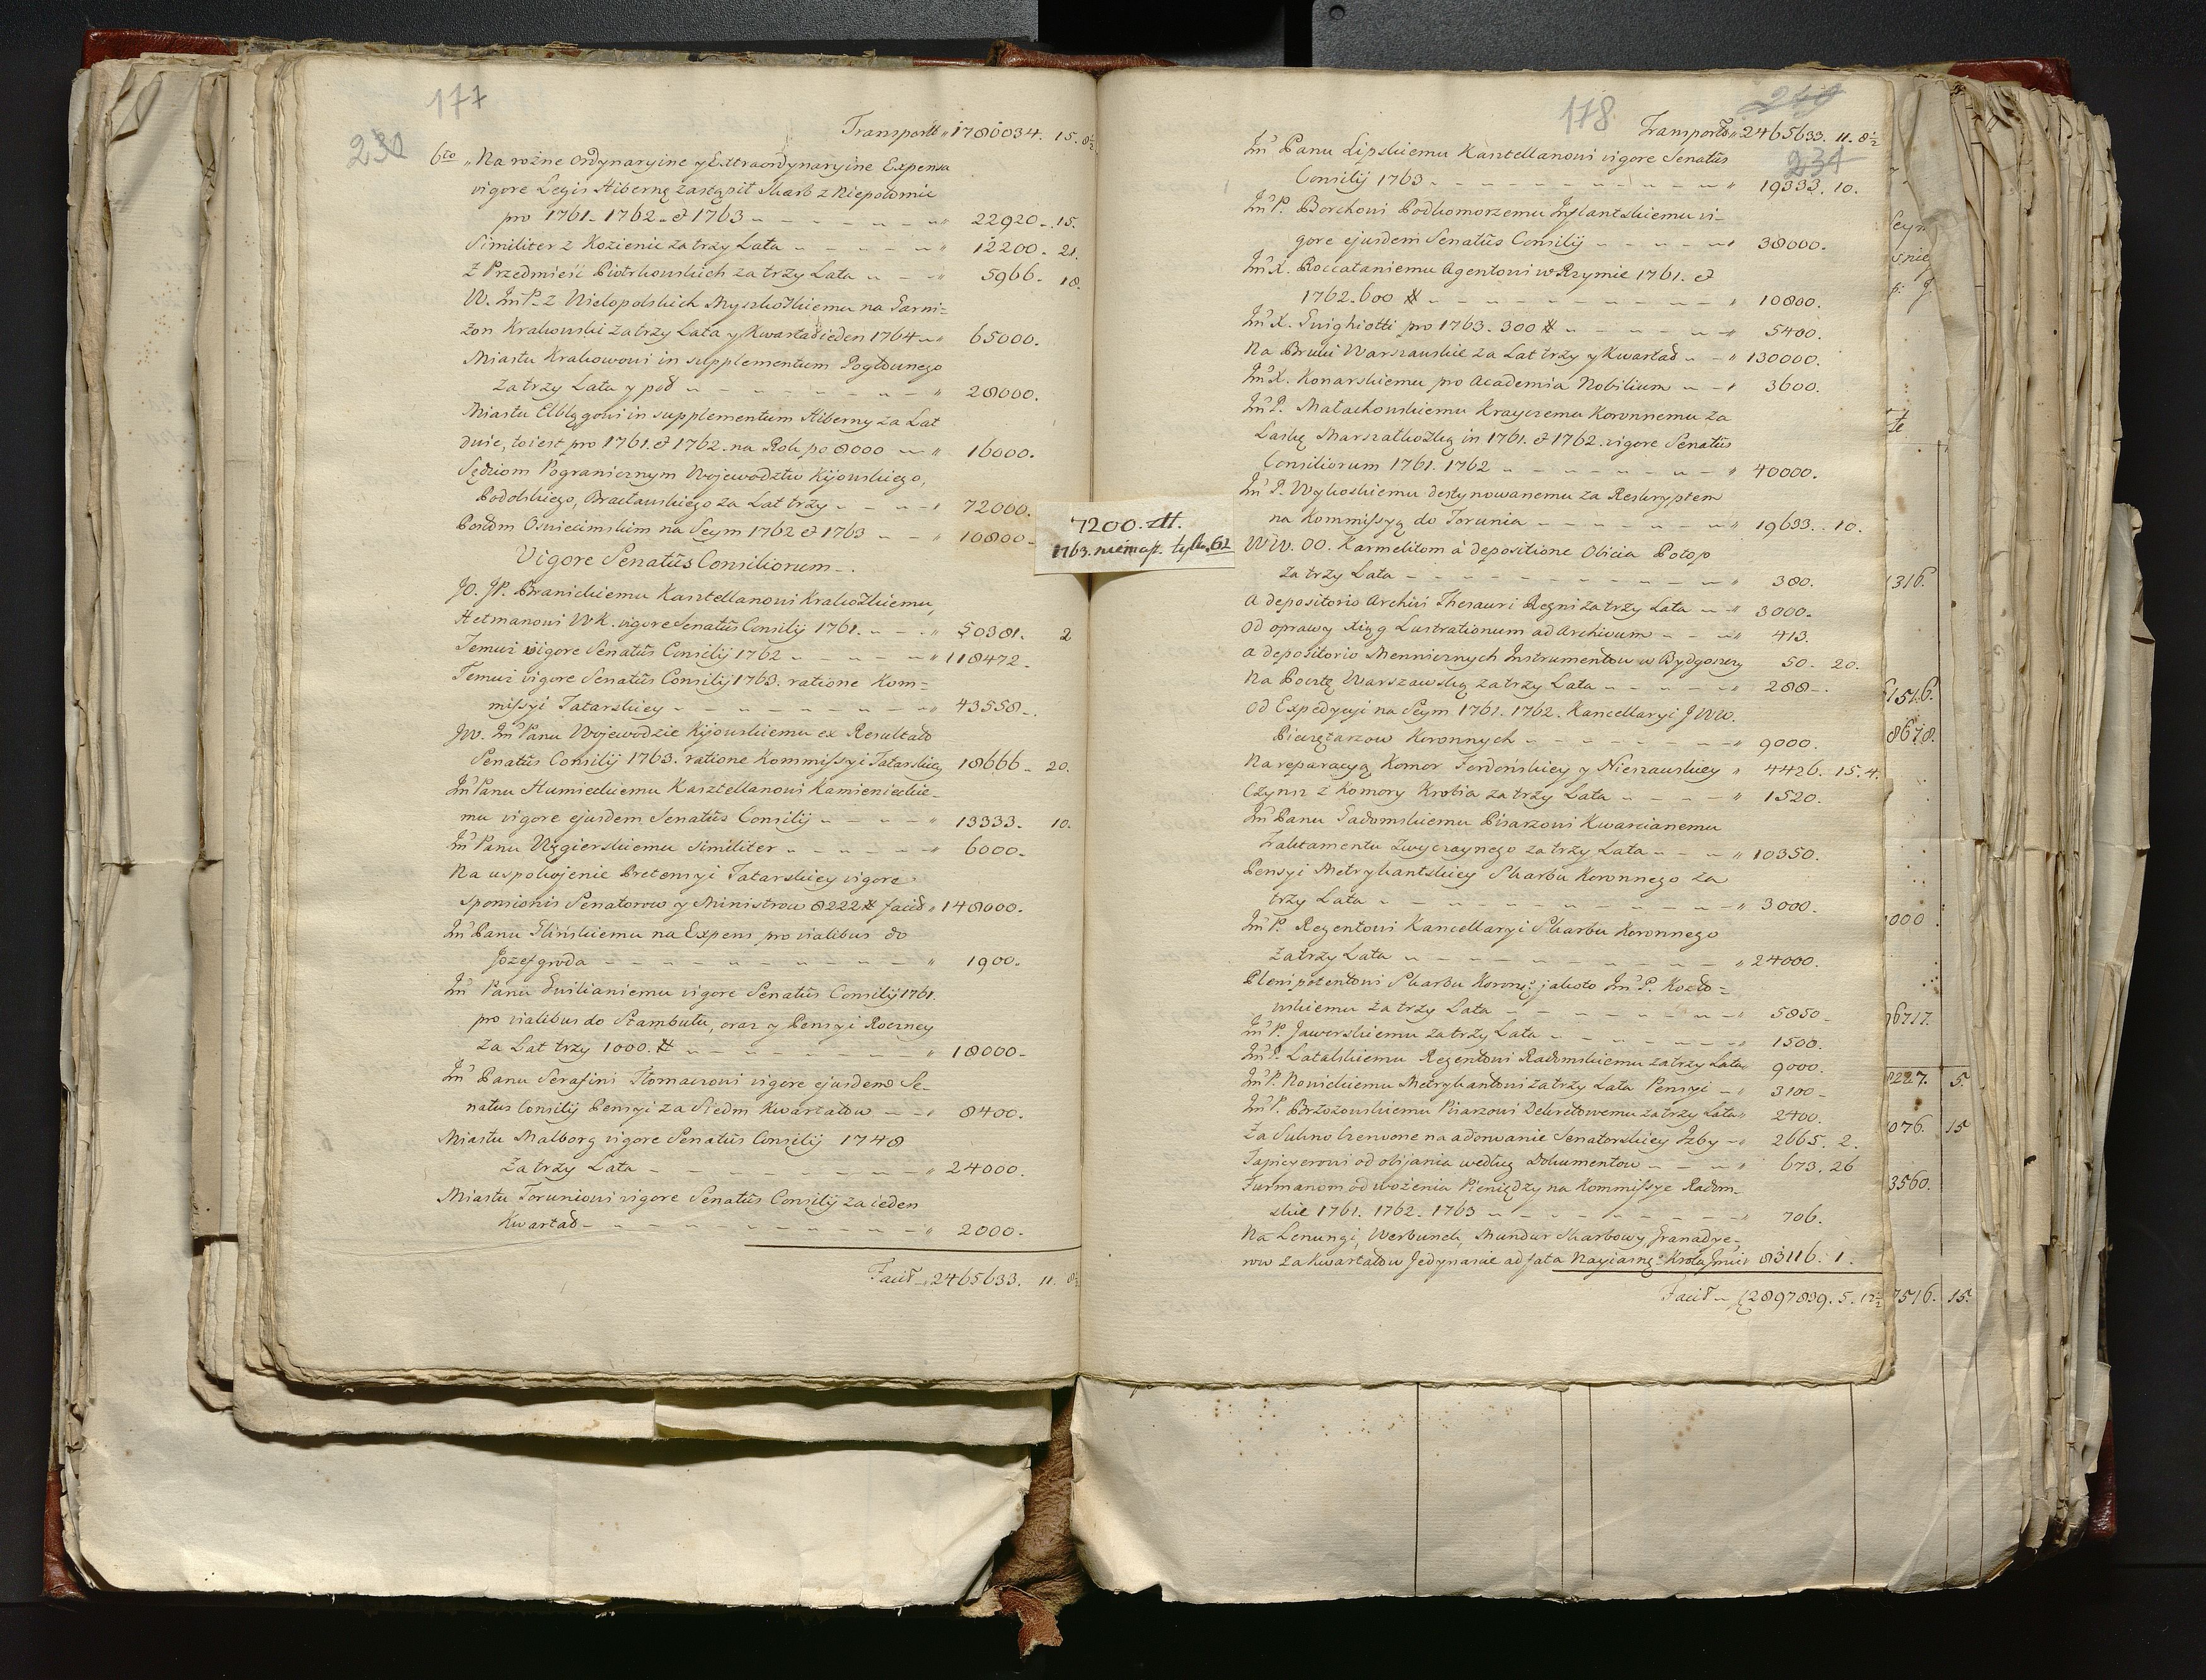 177
230
Transport „ 1780034. 15. 8½
6to „ Na rożne Ordynaryine y Extraordynaryine Expensa
vigore Legis Hibernę zastąpił Skarb z Niepołomic
pro 1761. 1762. et 1763 „ 22920. 15.
Similiter z Kozienic za trzy Lata „ 12200. 21.
z Przedmieść Piotrkowskich za trzy Lata „ 5966. 18.
W. Jmć P. z Wielopolskich Myszkowskiemu na Garni=
zon Krakowski za trzy Lata y Kwartał ieden 1764 „ 65000.
Miastu Krakowowi in supplementum Pogłownego
za trzy Lata y poł „ 28000.
Miastu Elblągowi in supplementum Hiberny za Lat
dwie, to iest pro 1761. et 1762. na Rok po 8000 „ 16000.
Sędziom Pogranicznym Wojewodztw Kijowskiego,
Podolskiego, Bracławskiego za Lat trzy „ 72000.
Posłom Oswiecimskim na Seym 1762 et 1763 „ 10800.
Vigore Senatûs Consiliorum.
JO. JP. Branickiemu Kasztellanowi Krakowskiemu,
Hetmanowi WK. vigore Senatûs Consilij 1761. „ 50381. 2
Temuż vigore Senatûs Consilij 1762 „ 118472.
Temuż vigore Senatûs Consilij 1763. ratione Kom=
missyi Tatarskiey „ 43558.
JW. Jmć Panu Wojewodzie Kijowskiemu ex Resultato
Senatûs Consilij 1763. ratione Kommissyi Tatarskiey 18666. 20.
Jmć Panu Humieckiemu Kasztellanowi Kamienieckie=
mu vigore ejusdem Senatûs Consilij „ 13333. 10.
Jmć Panu Węgierskiemu similiter „ 6000.
Na uspokojenie Pretensyi Tatarskiey vigore
sponsionis Senatorow y Ministrow 8222 # facit „ 148000.
Jmć Panu Glińskiemu na Expens pro vialibus do
Jozefgroda „ 1900.
Jmć Panu Giulianiemu vigore Senatûs Consilij 1761.
pro vialibus do Stambułu, oraz y Pensyi Roczney
za Lat trzy 1000. # „ 18000.
Jmć Panu Serafini Tłomaczowi vigore ejusdem Se=
natus Consilij Pensyi za Siedm Kwartałow „ 8400.
Miastu Malborg vigore Senatûs Consilij 1748
za trzy Lata „ 24000.
Miastu Toruniowi vigore Senatûs Consilij za ieden
Kwartał „ 2000.
Facit „ 2465633. 11. 8½
7200. złł.
1763. niemasz. tylko. 62
178
240
234
Transport „ 2465633. 11. 8½
Jmć Panu Lipskiemu Kasztellanowi vigore Senatûs
Consilij 1763 „ 19333. 10.
Jmć P. Borchowi Podkomorzemu Inflantskiemu vi=
gore ejusdem Senatûs Consilij „ 38000.
Jmć X. Roccataniemu Agentowi w Rzymie 1761. et
1762. 600 # „ 10800.
Jmć X. Guighiotti pro 1763. 300 # „ 5400.
Na Bruki Warszawskie za Lat trzy y Kwartał „ 130000.
Jmć X. Konarskiemu pro Academia Nobilium „ 3600.
Jmć P. Małachowskiemu Krayczemu Koronnemu za
Laskę Marszałkowską in 1761. et 1762. vigore Senatûs
Consiliorum 1761. 1762 „ 40000.
Jmć P. Wykoskiemu destynowanemu za Reskryptem
na Kommissyą do Torunia „ 19633. 10.
WW. OO. Karmelitom à depositione Olicia Potop
za trzy Lata „ 380.
a depositorio Archivi Thesauri Regni za trzy Lata „ 3000.
od oprawy Xiąg Lustrationum ad Archivum „ 413.
a depositorio Menniczných Instrumentow w Bydgoszczy 50. 20.
Na Pocztę Warszawską za trzy Lata „ 288.
od Expedycyi na Seym 1761. 1762. Kancellaryi JWW.
Pieczętarzow Koronnych „ 9000.
Na reparacyą Komor Fordońskiey y Nieszawskiey „ 4426. 15. 4.
Czynsz z Komory Krobia za trzy Lata „ 1520.
Jmć Panu Gadomskiemu Pisarzowi Kwarcianemu
Traktamentu Zwyczaynego za trzy Lata „ 10350.
Pensyi Metrykantskiey Skarbu Koronnego za
trzy Lata „ 3000.
Jmć P. Regentowi Kancellaryi Skarbu Koronnego
za trzy Lata „ 24000.
Plenipotentowi Skarbu Koronę: jakoto Jmć P. Kozło=
wskiemu za trzy Lata „ 5850.
Jmć P. Jaworskiemu za trzy Lata „ 1500.
Jmć P. Latalskiemu Regentowi Radomskiemu za trzy Lata „ 9000.
Jmć P. Nowickiemu Metrykantowi za trzy Lata Pensyi „ 3100.
Jmć P. Brzozowskiemu Pisarzowi Dekretowemu za trzy Lata „ 2400.
Za Sukno Czerwone na adornanie Senatorskiey Izby „ 2665. 2.
Tapicyerowi od obijania według Dokumentow „ 673. 26
Furmanom od wożenia Pieniędzy na Kommissye Radom=
skie 1761. 1762. 1763 „ 706.
Na Lenungi, Werbunek, Mundur Skarbowy Granadye=
row za Kwartałow Jedynascie ad fata Nayiasnę: Krola Jmci 83116. 1.
Facit „ 2897839. 5. 12½
1316.
6151.6.
8678.
1000
96717.
8227. 5.
1076. 15
3560.
7516. 15.